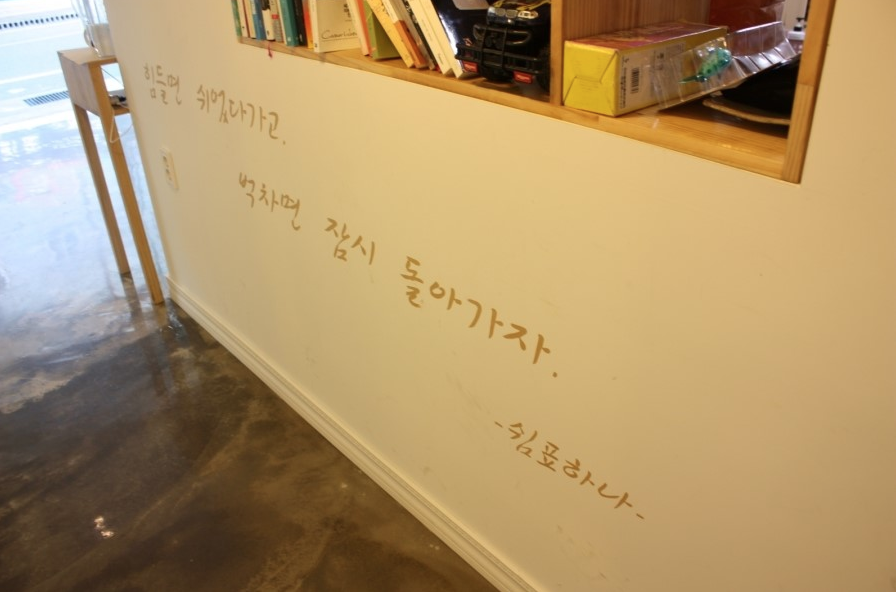 힘들면 쉬었다가고.
벅차면 잠시 돌아가자.
-쉼표하나-